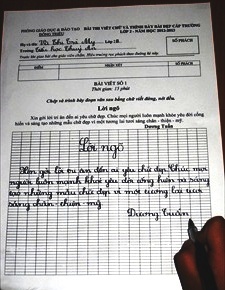 PHÒNG GIÁO DỤC & ĐÀO TẠO
ĐÔNG TRIỀU
BÀI THI VIẾT CHỮ VÀ TRÌNH BÀY BÀI ĐẸP CẤP TRƯỜNG
LỚP 2 - NĂM HỌC 2012-2013
Họ và tên: Thu Trà My Lớp: 2B
Trường: Tiểu học Thuỷ An
SỐ PHÁCH
ĐIỂM
NHẬN XÉT
SỐ PHÁCH
BÀI VIẾT SỐ 1
Thời gian: 15 phút
Chép và trình bày đoạn văn sau bằng chữ viết đứng, nét đều.
Lời ngỏ
Xin gửi lời tri ân đến ai yêu chữ đẹp. Chúc mọi người luôn mạnh khỏe yêu đời cống
hiến và sáng tạo những mẫu chữ đẹp vì một tương lai tươi sáng chân - thiện - mỹ.
Dương Tuấn
Lời ngỏ
Xin gửi lời tri ân đến ai yêu chữ đẹp. Chúc mọi
người luôn mạnh khỏe yêu đời cống hiến và sáng
tạo những mẫu chữ đẹp vì một tương lai tươi
sáng chân - thiện - mỹ
Dương Tuấn